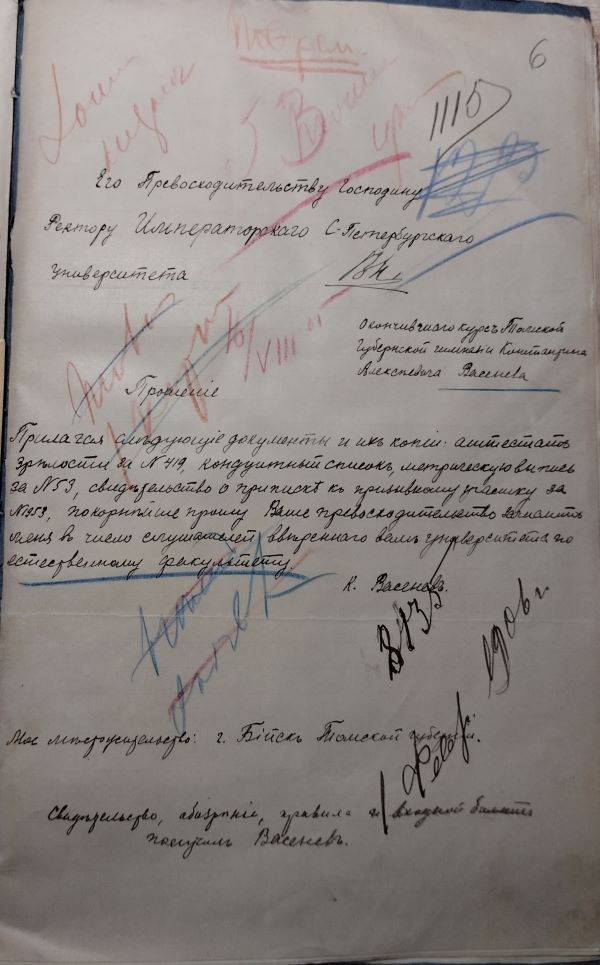 6
1115
Его Превосходительству Господину
Ректору Императорскаго С-Петербургскаго
Университета
Окончившаго курсъ Томской
Губернской гимназіи Константина
Алексѣевича Васенева
10/VIII
Прошеніе
Прилагая слѣдующіе документы и ихъ копіи: аттестатъ
зрѣлости за №419, кондуитный списокъ, метрическую выпись
за №53, свидѣтельство о припискѣ къ призывному участку за
№959, покорнѣйше прошу Ваше превосходительство зачислить
меня въ число слушателей ввѣреннаго вамъ университета по
естественному факультету.
К. Васеневъ.
1906 г
Мое мѣстожительство: г. Бійскъ Томской губерніи.
Свидѣтельство, обозрѣніе, правила и входной билетъ
получилъ Васеневъ.